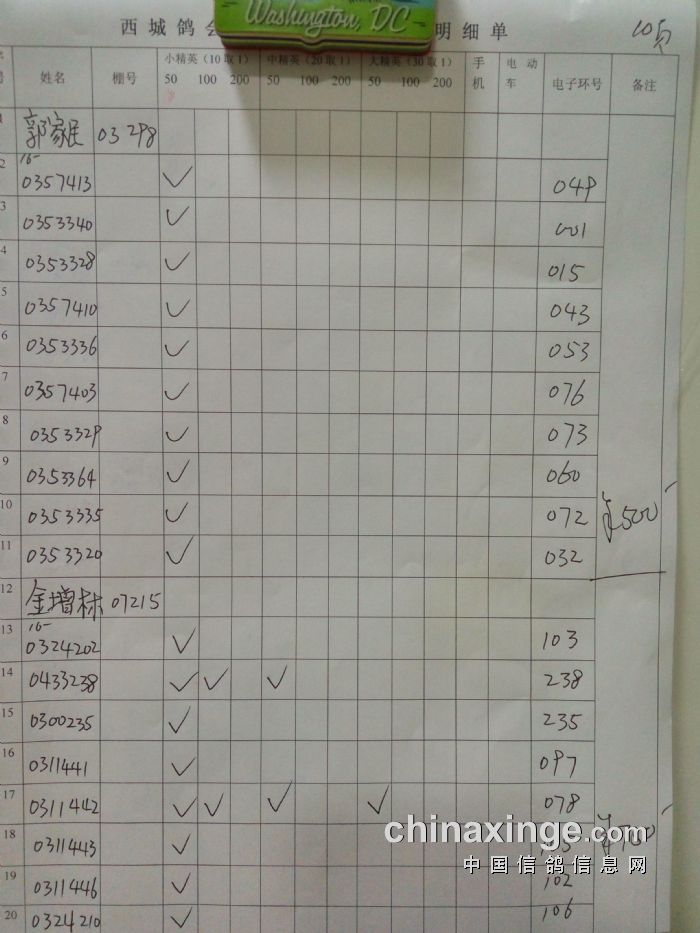 Washington, DC
西城鸽会 明细单 10页
号 姓名 棚号 小精英(10取1) 中精英(20取1) 大精英(30取1) 手机 电动车 电子环号 备注
50 100 200 50 100 200 50 100 200
1 郭家民 03298
16-
2 0357413 ✓ 049
3 0353340 ✓ 001
4 0353328 ✓ 015
5 0357410 ✓ 043
6 0353336 ✓ 053
7 0357403 ✓ 076
8 0353329 ✓ 073
9 0353364 ✓ 060
10 0353335 ✓ 072 ¥500
11 0353320 ✓ 032
12 金增标 07215
16-
13 0324202 ✓ 103
14 0433238 ✓ ✓ ✓ 238
15 0300235 ✓ 235
16 0311441 ✓ 097
17 0311442 ✓ ✓ ✓ ✓ 078
18 0311443 ✓ ¥700
19 0311446 ✓ 102
20 0324210 ✓ 106
chinaxinge.com
中国信鸽信息网